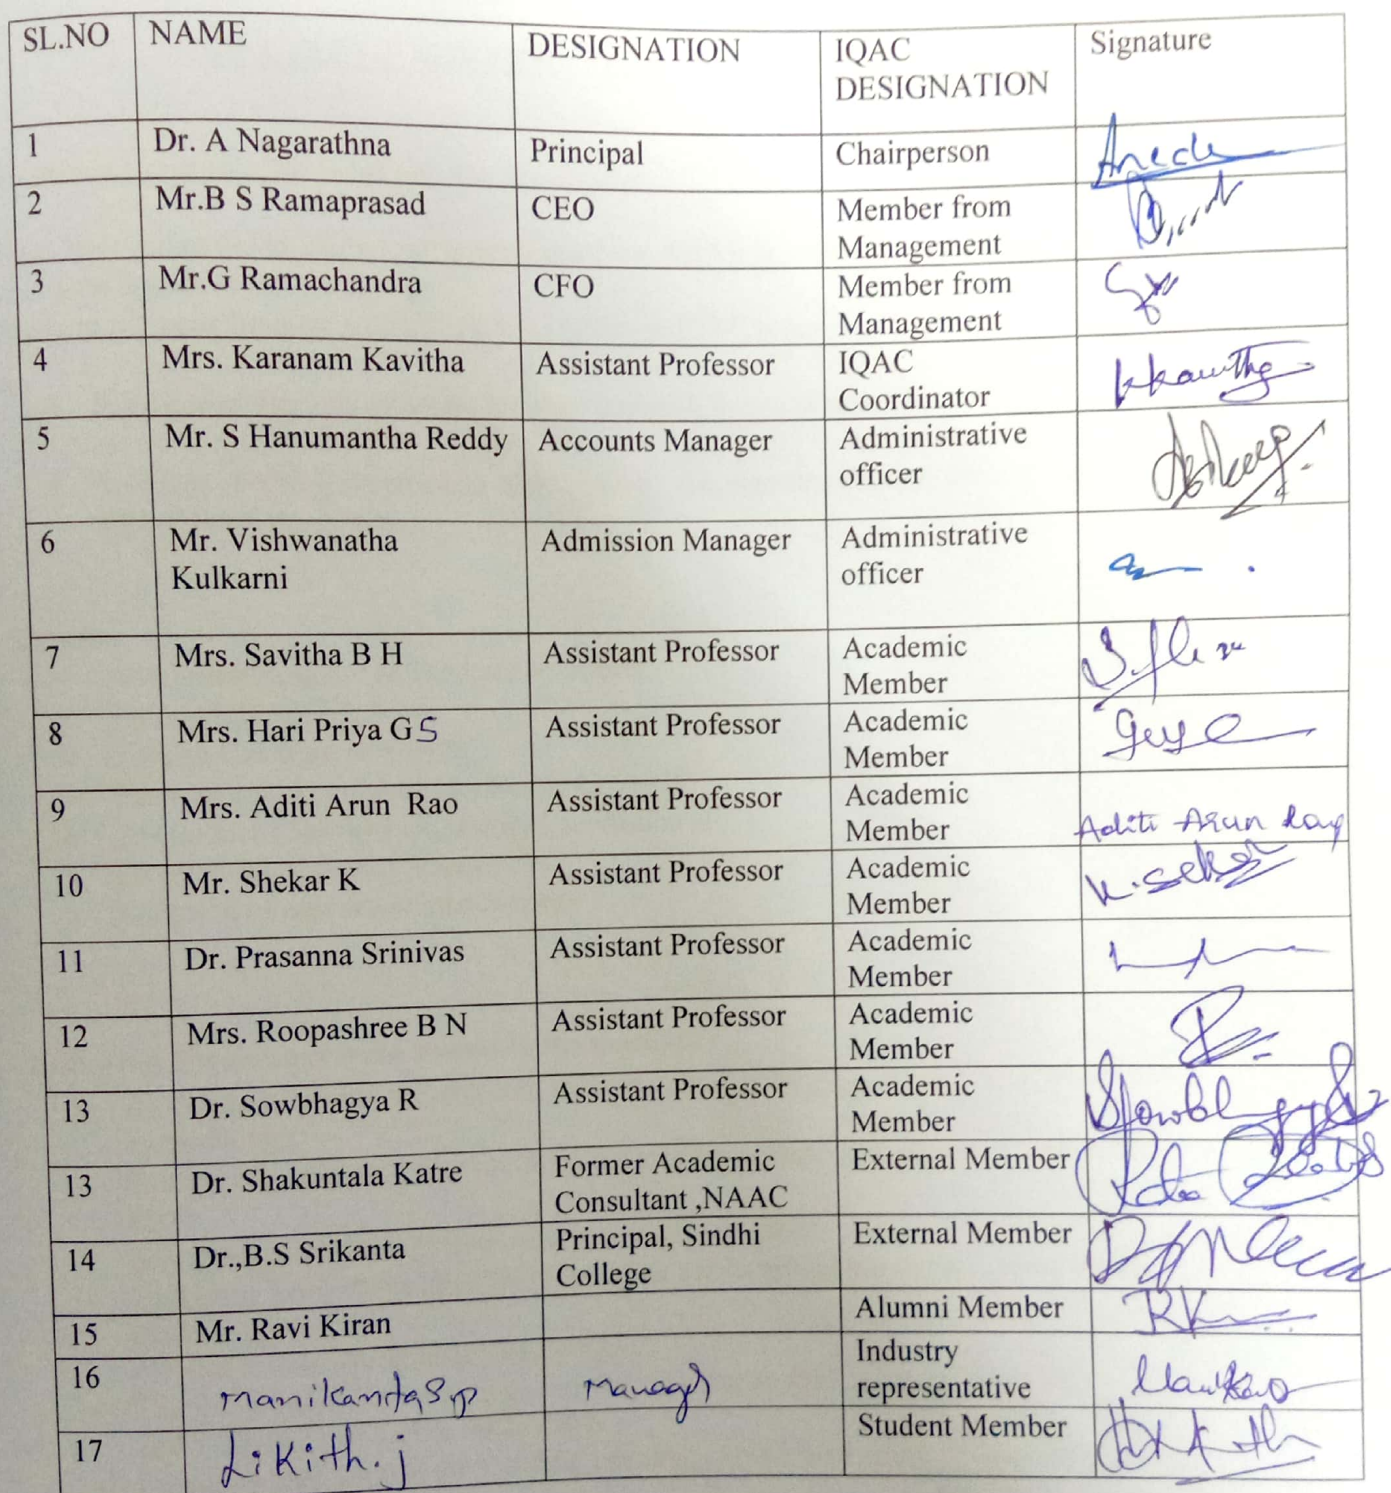 SL.NO NAME DESIGNATION IQAC DESIGNATION Signature
1 Dr. A Nagarathna Principal Chairperson
2 Mr.B S Ramaprasad CEO Member from Management
3 Mr.G Ramachandra CFO Member from Management
4 Mrs. Karanam Kavitha Assistant Professor IQAC Coordinator kkavitha
5 Mr. S Hanumantha Reddy Accounts Manager Administrative officer
6 Mr. Vishwanatha Kulkarni Admission Manager Administrative officer
7 Mrs. Savitha B H Assistant Professor Academic Member
8 Mrs. Hari Priya G S Assistant Professor Academic Member
9 Mrs. Aditi Arun Rao Assistant Professor Academic Member Aditi Arun Rao
10 Mr. Shekar K Assistant Professor Academic Member
11 Dr. Prasanna Srinivas Assistant Professor Academic Member
12 Mrs. Roopashree B N Assistant Professor Academic Member
13 Dr. Sowbhagya R Assistant Professor Academic Member
13 Dr. Shakuntala Katre Former Academic Consultant ,NAAC External Member
14 Dr.,B.S Srikanta Principal, Sindhi College External Member
15 Mr. Ravi Kiran Alumni Member
16 Industry representative
17 Likith.j Student Member